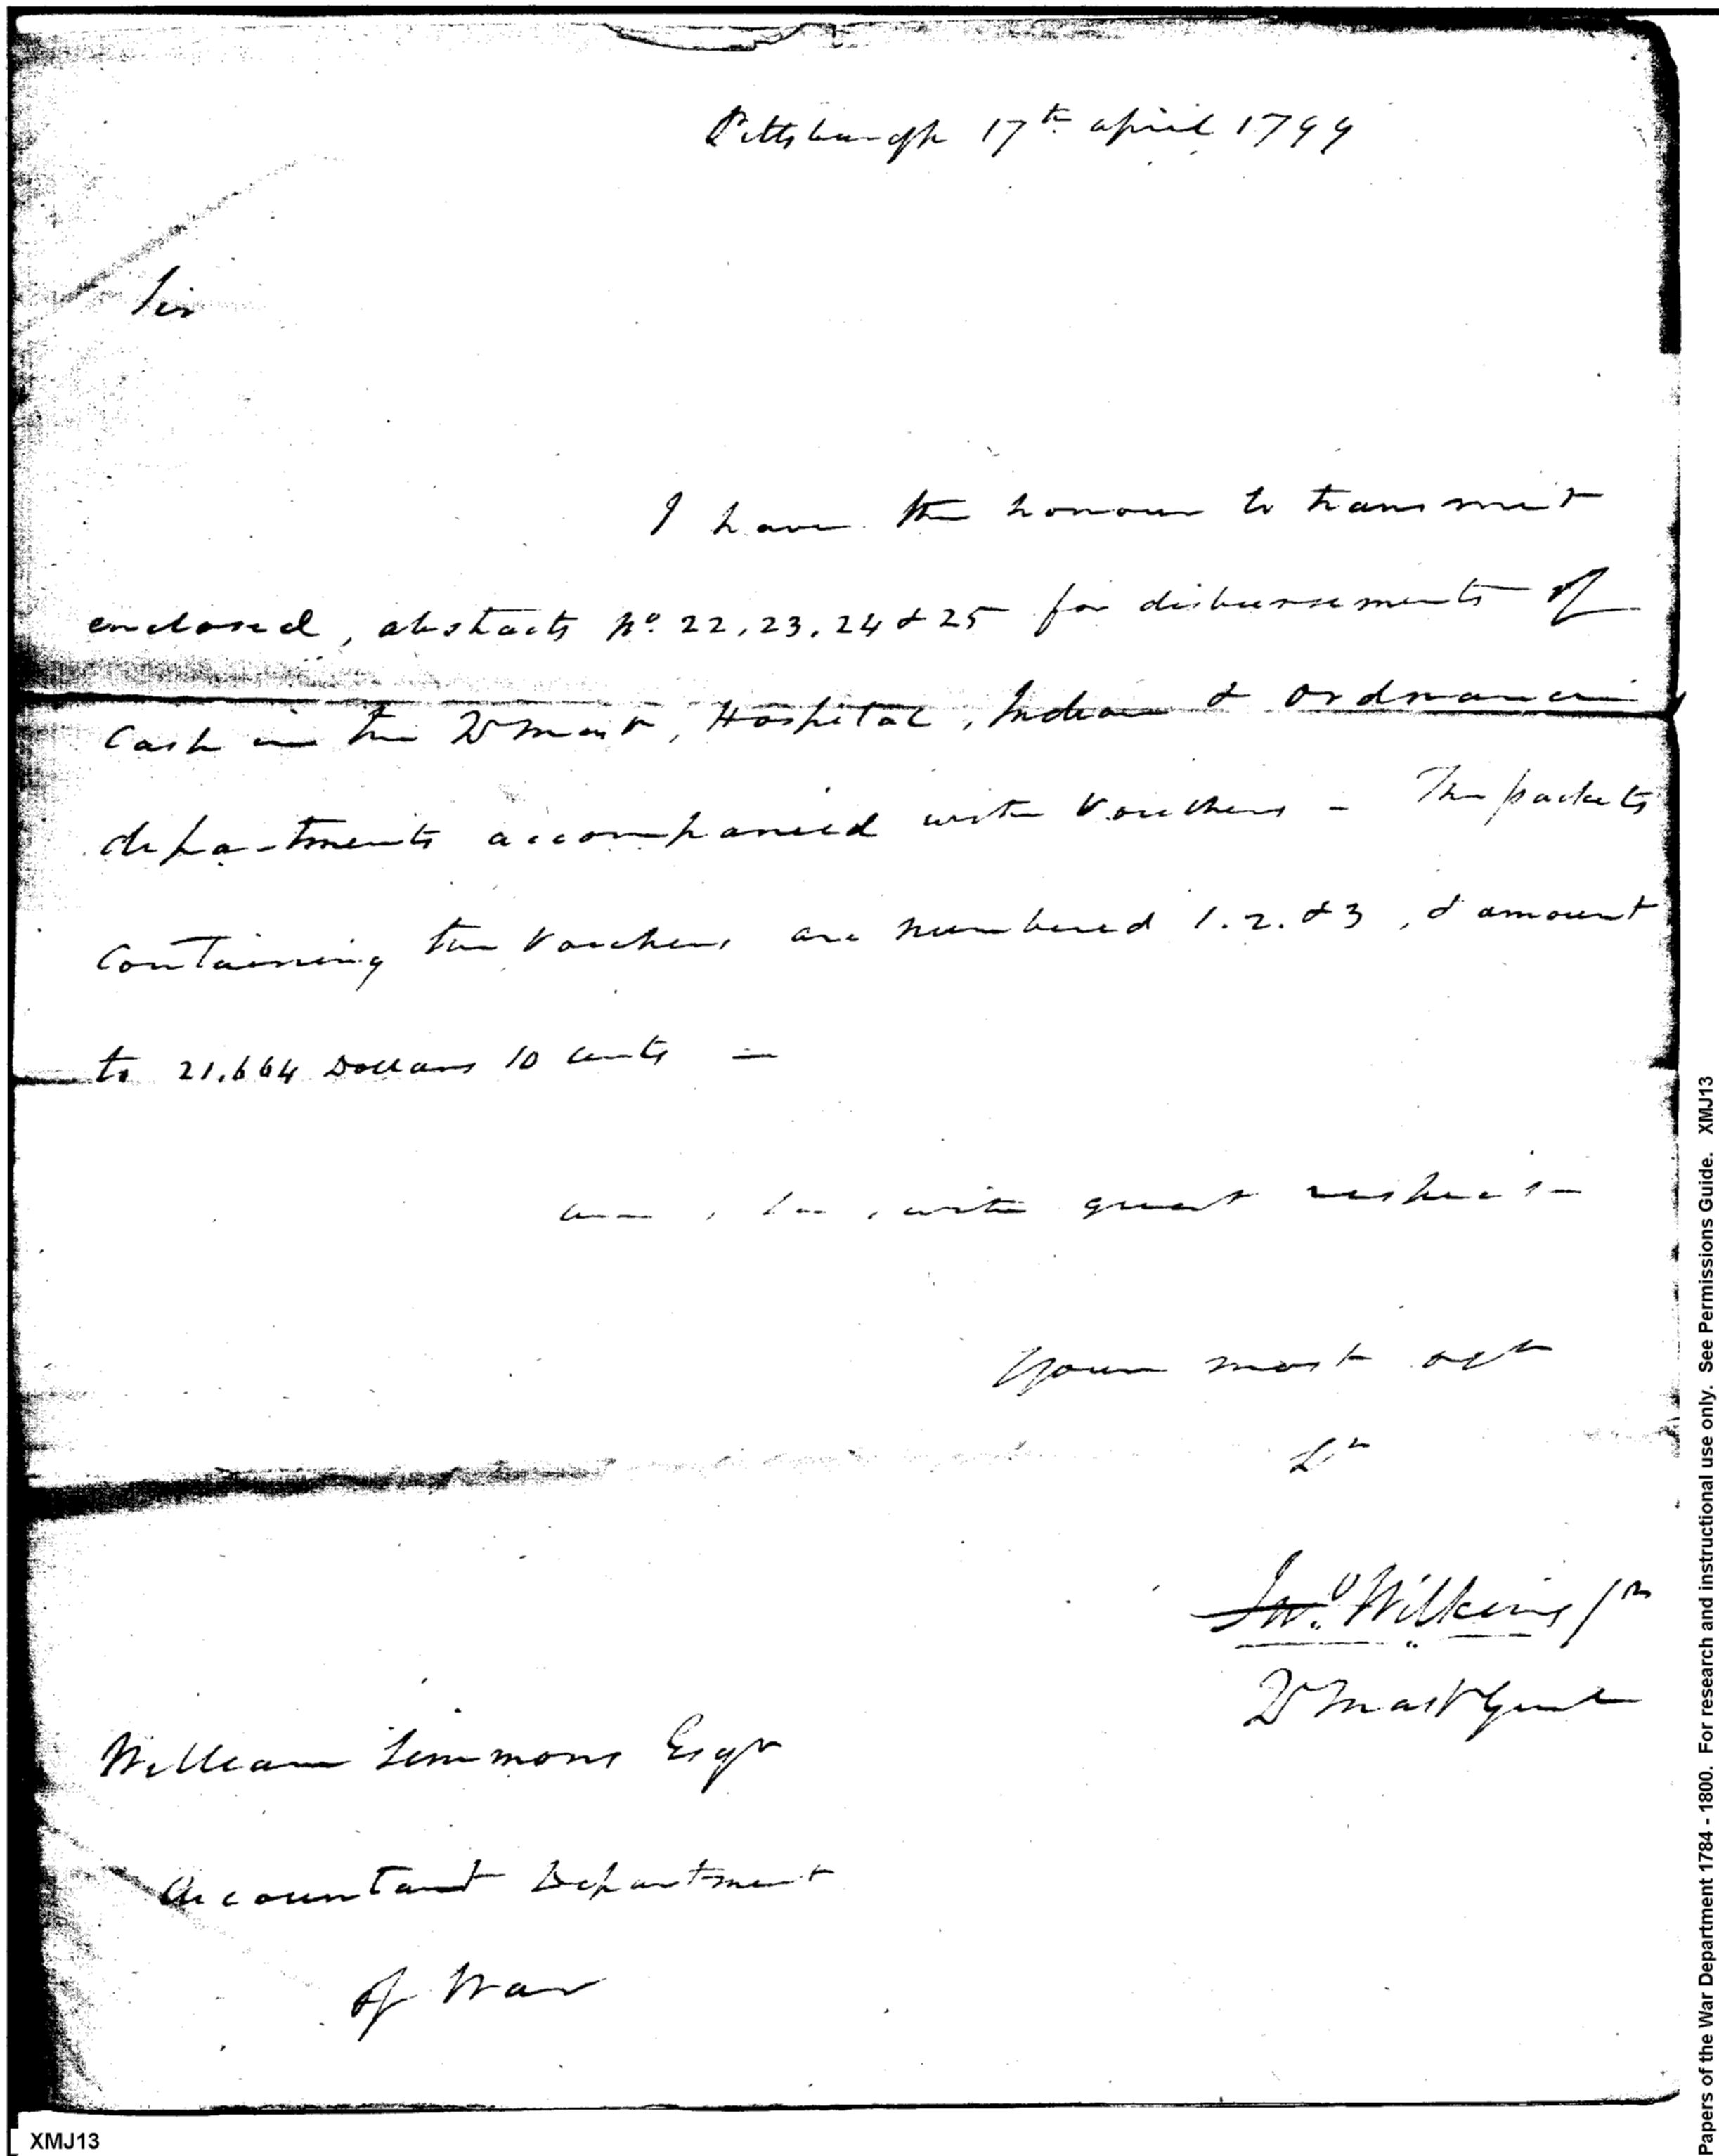 Pittsburgh 17th april 1799
Sir
I have the honour to transmit
enclosed, abstracts No. 22, 23, 24 & 25 for disbursements of
Cash in the Qr Mastr, Hospital, Indian & Ordnance
departments accompanied with Vouchers - The packets
Containing the Vouchers are numbered 1. 2. & 3, & amount
to 21.664 Dollars 10 Cents —
with great respect
Your most obt
St
Jno. Wilkins Jr
Qr Mastr Genl
William Simmons Esqr
Accountant Department
of War
XMJ13
Papers of the War Department 1784 - 1800. For research and instructional use only. See Permissions Guide. XMJ13